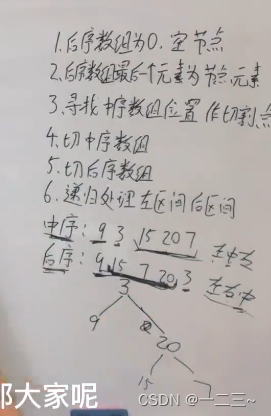 1.后序数组为0.空节点
2.后序数组最后一个元素为节点元素
3.寻找中序数组位置作切割点
4.切中序数组
5.切后序数组
6.递归处理左区间后区间
中序: 9 3 15 20 7 左中右
后序: 9 15 7 20 3 左右中
3
9 20
15 7
那大家呢
CSDN @一二三~